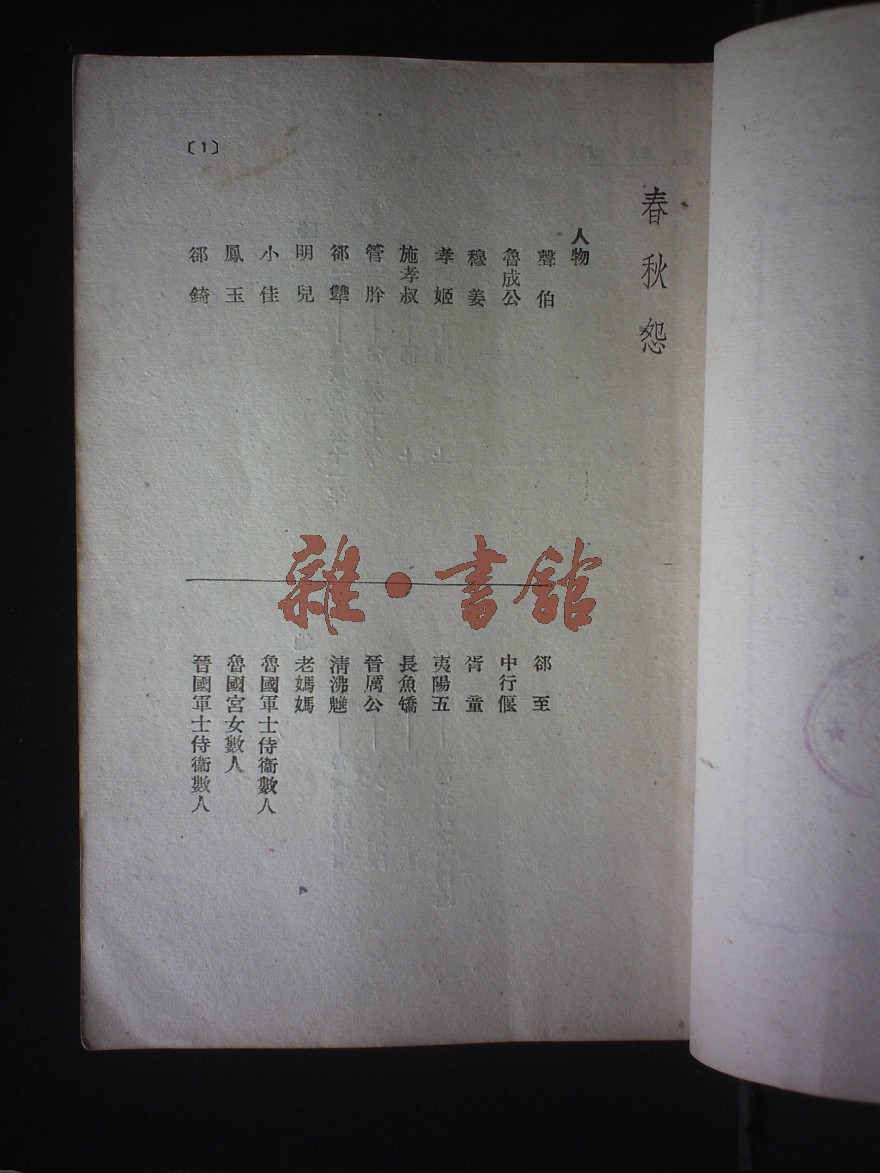 春秋怨
人物
聲伯
魯成公
穆姜
孝姬
施孝叔
管脟
郤犫
明兒
小佳
鳳玉
郤錡
郤至
中行偃
胥童
夷陽五
長魚矯
晉厲公
清沸魋
老媽媽
魯國軍士侍衞數人
魯國宮女數人
晉國軍士侍衞數人
〔1〕
雜·書館